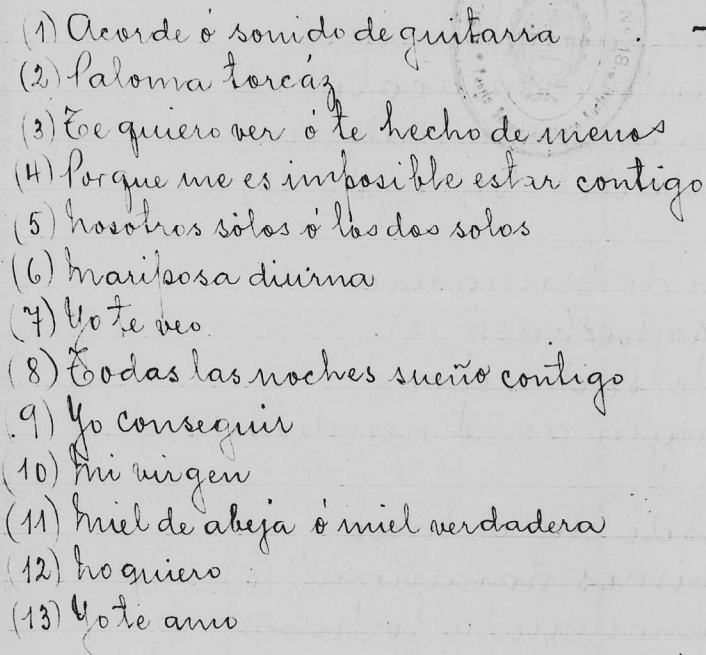 (1) Acorde ó sonido de guitarra
(2) Paloma torcáz
(3) Te quiero ver ó te hecho de menos
(4) Porque me es imposible estar contigo
(5) Nosotros sólos ó los dos solos
(6) Mariposa diurna
(7) Yo te veo
(8) Todas las noches sueño contigo
(9) Yo conseguir
(10) Mi virgen
(11) Miel de abeja ó miel verdadera
(12) No quiero
(13) Yo te amo